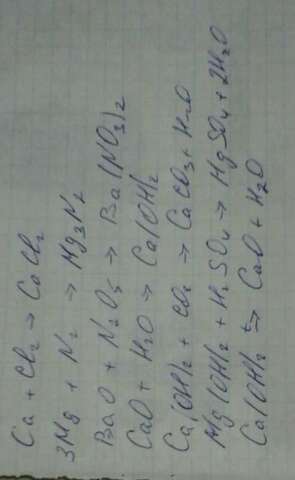 Ca + Cl₂ → CaCl₂
3Mg + N₂ → Mg₃N₂
BaO + N₂O₅ → Ba(NO₃)₂
CaO + H₂O → Ca(OH)₂
Ca(OH)₂ + CO₂ → CaCO₃ + H₂O
Mg(OH)₂ + H₂SO₄ → MgSO₄ + 2H₂O
Ca(OH)₂ t→ CaO + H₂O